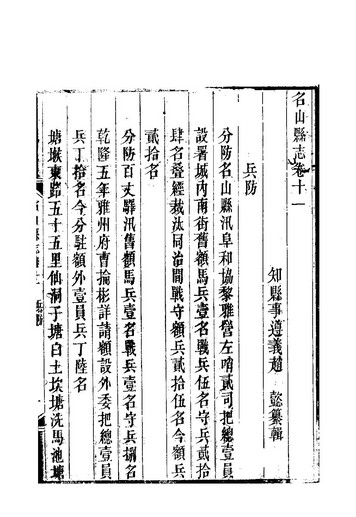 名山縣志卷十一
知縣事遵義趙 懿纂輯
兵防
分防名山縣汛阜和協黎雅營左哨貳司把總壹員
設署城內南街舊額馬兵壹名戰兵伍名守兵貳拾
肆名疊經裁汰同治間戰守額兵貳拾伍名今額兵
貳拾名
分防百丈驛汛舊額馬兵壹名戰兵壹名守兵捌名
乾隆五年雅州府曹掄彬詳請額設外委把總壹員
兵丁拾名今分駐額外壹員兵丁陸名
塘堠東路五十五里仙洞子塘白土坎塘洗馬池塘